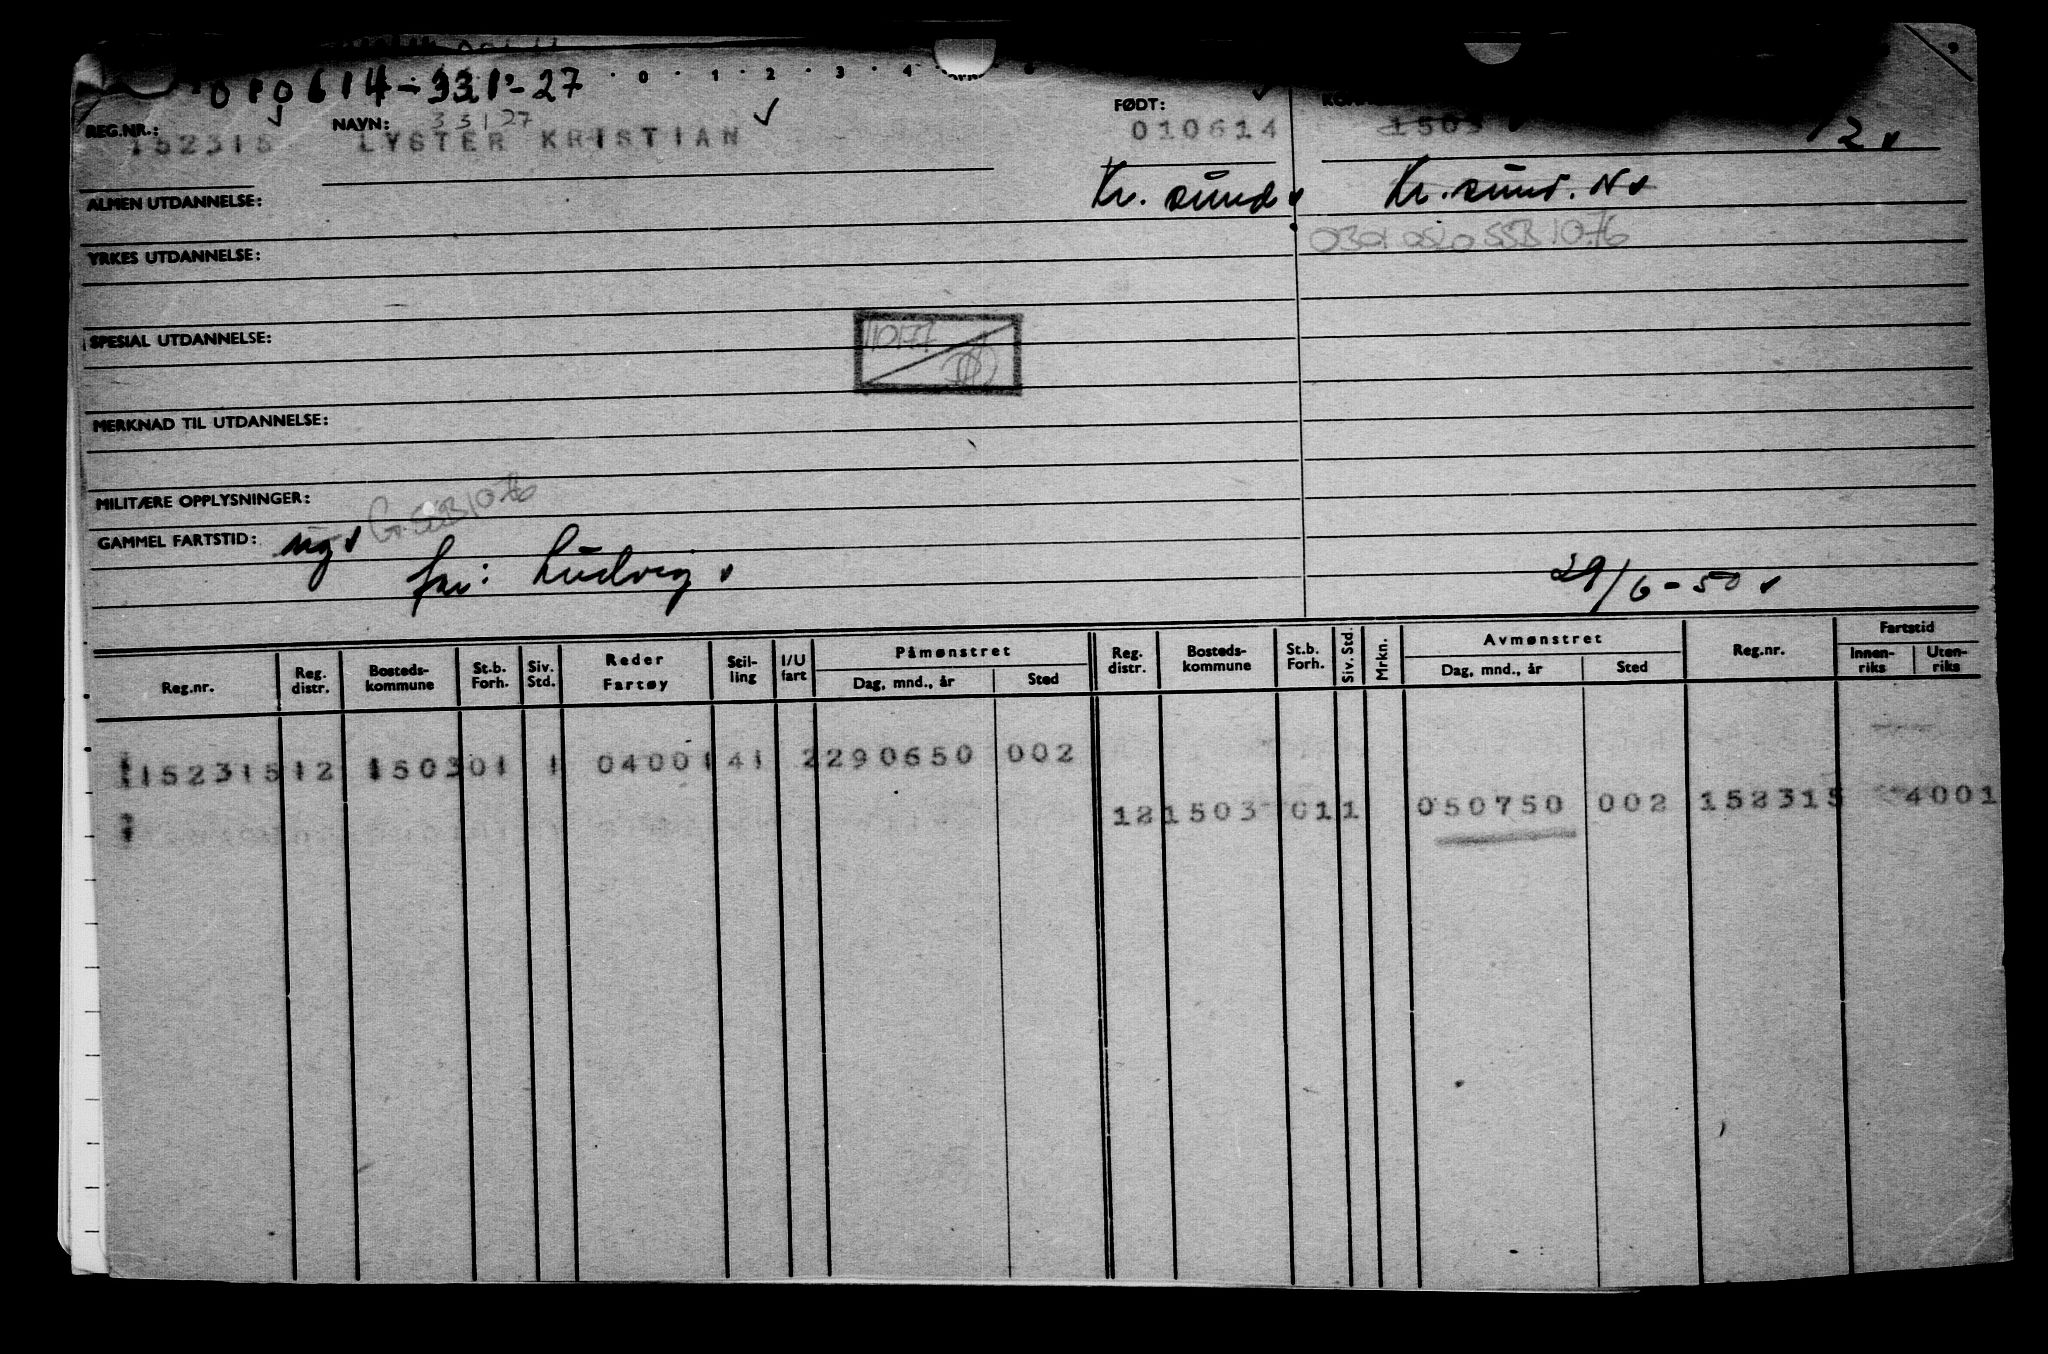 010614-331-27
0 1 2 3 4
REG.NR.: NAVN: 33127 FØDT:
152315 LYSTER KRISTIAN 010614 1503 12
Kr. sund Kr. sund. N
ALMEN UTDANNELSE:
0301 oslo SSB 10.76
YRKES UTDANNELSE:
SPESIAL UTDANNELSE:
MERKNAD TIL UTDANNELSE:
MILITÆRE OPPLYSNINGER:
G. SSB 10.76
GAMMEL FARTSTID: ug
far: Ludvig 29/6-50
Reg.nr. Reg. distr. Bosteds-kommune St.b. Forh. Siv. Std. Reder Fartøy Stil-ling I/U fart Påmønstret Dag, mnd., år Sted Reg. distr. Bosteds-kommune St.b. Forh. Siv. Std. Mrkn. Avmønstret Dag, mnd., år Sted Reg.nr. Fartstid Innen-riks Uten-riks
152315 12 1503 01 1 04001 41 2 290650 002
12 1503 01 1 050750 002 152315 4001